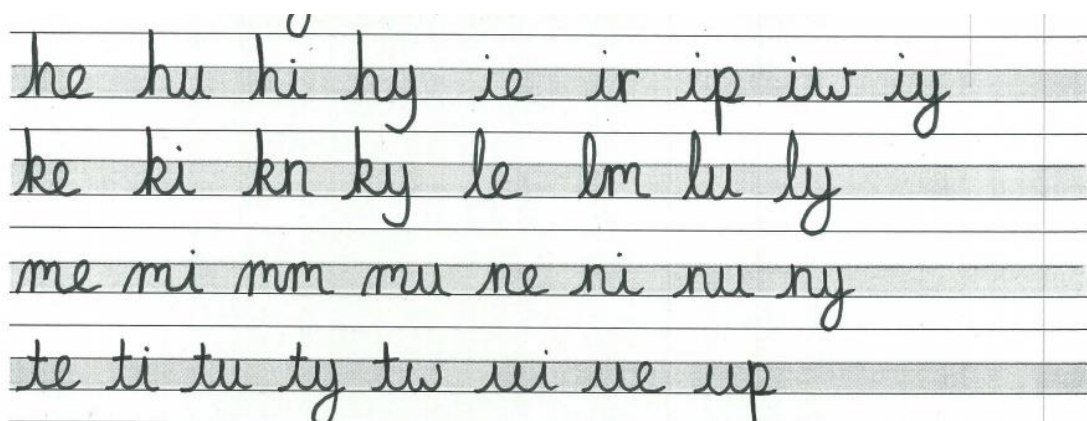 he hu hi hy ie ir ip iw iy
ke ki kn ky le lm lu ly
me mi mm mu ne ni nu ny
te ti tu ty tw ui ue up